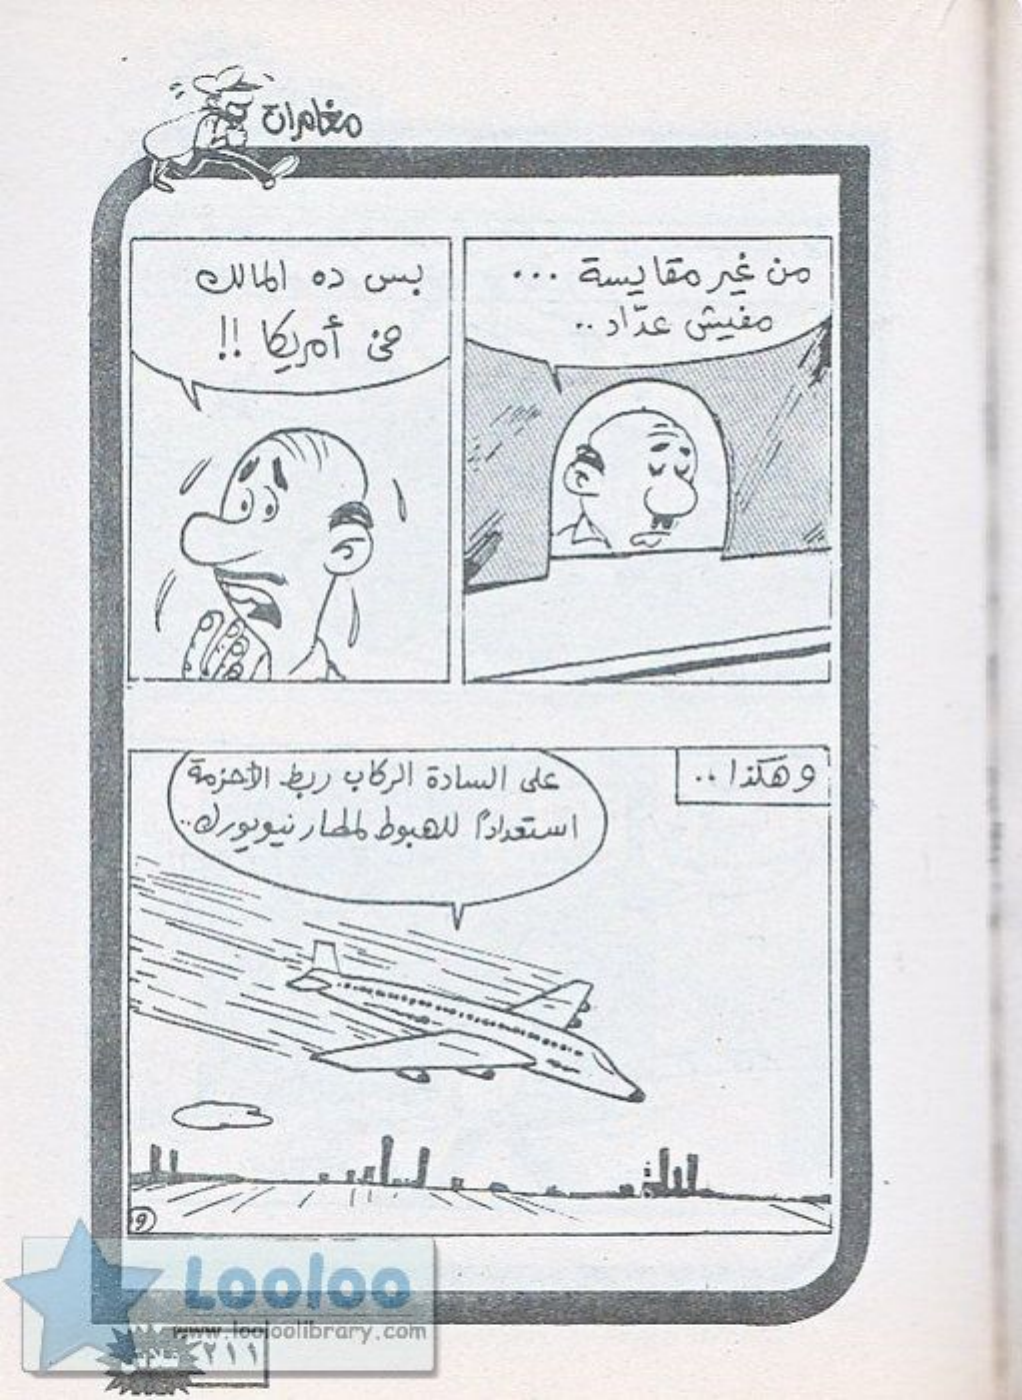 مغامرات
من غير مقايسة ...
مفيش عدّاد ..
بس ده المالك
فى أمريكا !!
وهكذا ..
على السادة الركاب ربط الأحزمة
استعدادًا للهبوط لمطار نيويورك ..
9
Looloo
www.looloolibrary.com
فلاش
٢١١